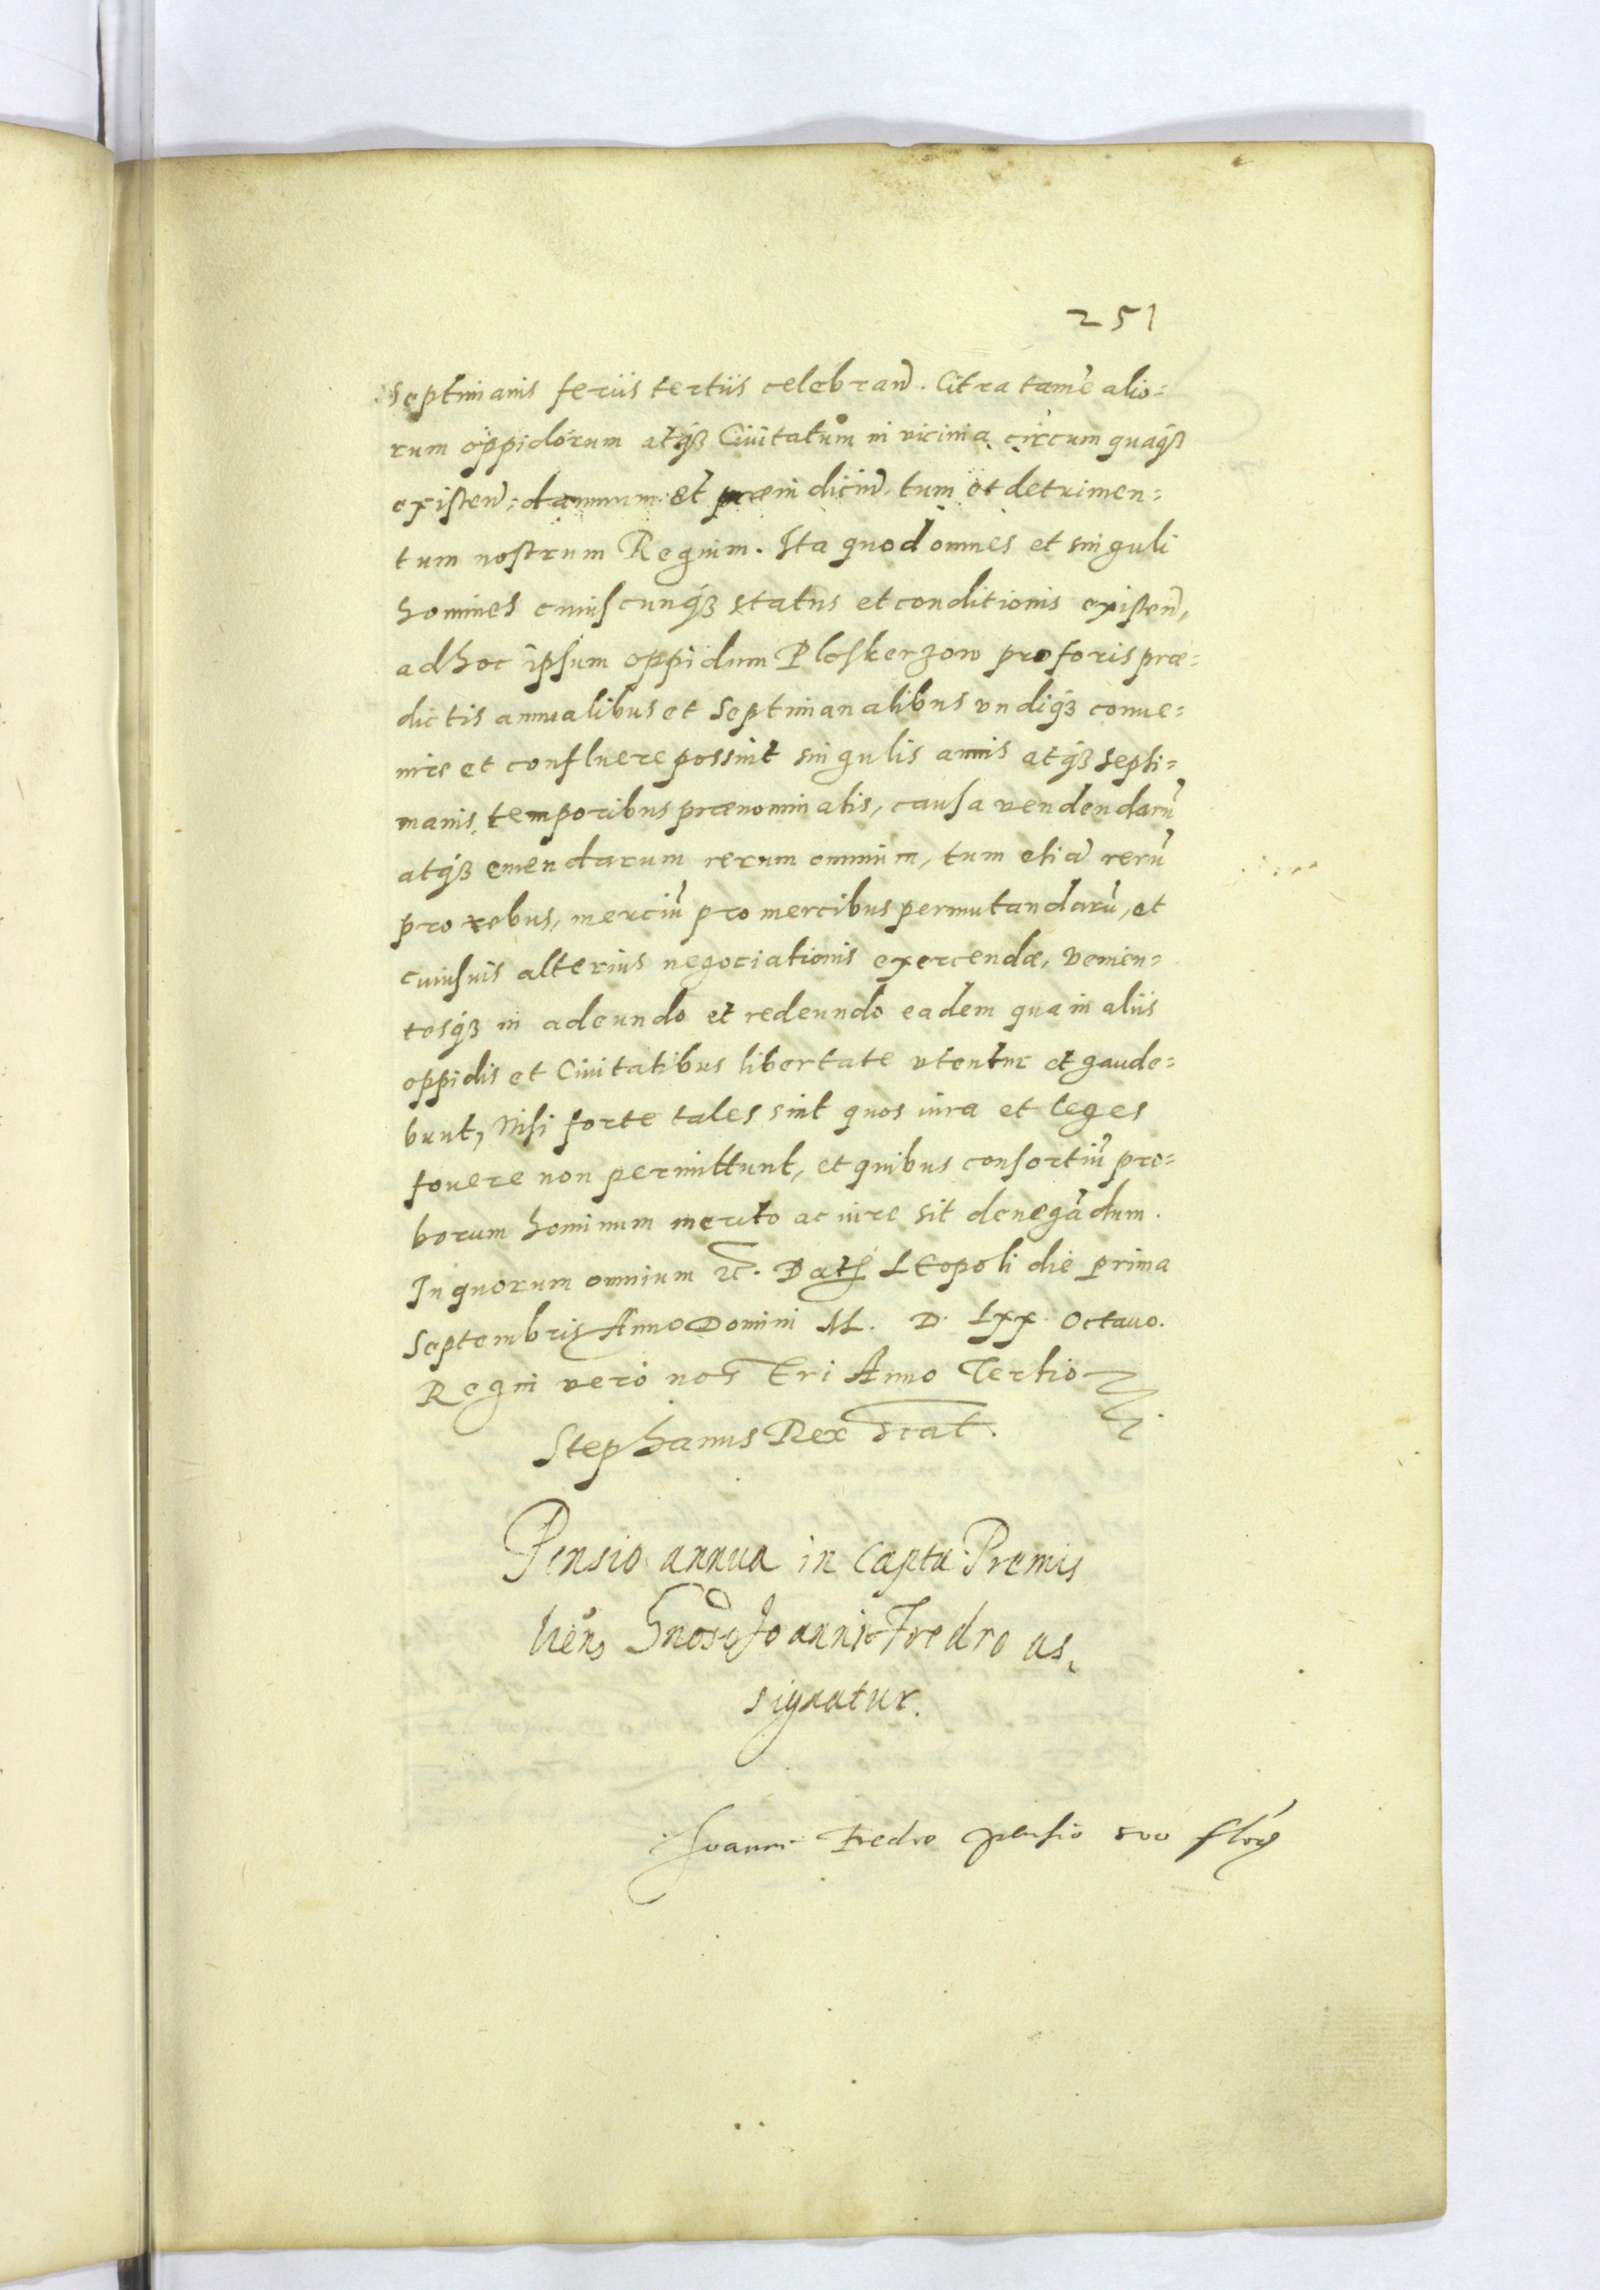 251
septimanis feriis tertiis celebran̄. Citra tamē alio=
rum oppidorum atq́ꝫ Ciuitatum in vicinia circum quaq́ꝫ
existen̄: damnum et præiudiciū, tum et detrimen=
tum nostrum Regium. Ita quod omnes et singuli
homines cuiuscunq́ꝫ status et conditionis existen̄,
ad hoc ipsum oppidum Ploskerzow pro foris præ=
dictis annualibus et septimanalibus vndiq́ꝫ conue=
nire et confluere possint singulis annis atq́ꝫ septi=
manis temporibus prænominatis, causa vendendarū
atq́ꝫ emendarum rerum omnium, tum etiā rerū
pro rebus, merciū pro mercibus permutandarū, et
cuiusuis alterius negociationis exercendæ, Venien=
tesq́ꝫ in adeundo et redeundo eadem qua in aliis
oppidis et Ciuitatibus libertate vtentur et gaude=
bunt, Nisi forte tales sint quos iura et leges
fouere non permittunt, et quibus consortiū pro=
borum hominum merito ac iure sit denegādum.
In quorum omnium ꝛc̄. Datꝭ LEopoli die prima
Septembris Anno Domini M. D. Lxx Octauo.
Regni verò nostri Anno Tertio
Stephanus Rex Scat.
Pensio annua in Capta: Premis
lien̄, Gnoso Joanni Fredro as,
signatur.
Joanni Fredro pensio 500 florꝭ